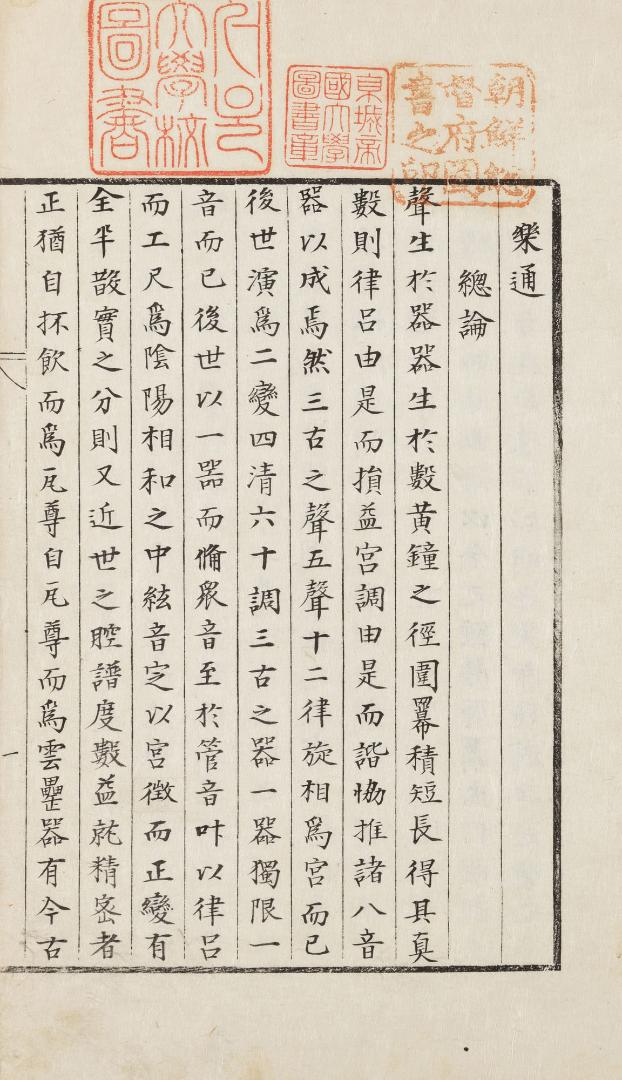 樂通
總論
聲生於器器生於數黃鐘之徑圍羃積短長得其眞
數則律呂由是而損益宮調由是而諧恊推諸八音
器以成焉然三古之聲五聲十二律旋相爲宮而已
後世演爲二變四清六十調三古之器一器獨限一
音而已後世以一器而俻衆音至於管音叶以律呂
而工尺爲陰陽相和之中絃音定以宮徵而正變有
全半散實之分則又近世之腔譜度數益就精密者
正猶自抔飮而爲瓦尊自瓦尊而爲雲罍器有今古
一
朝鮮總
督府圖
書之印
京城帝
國大學
圖書章
大學校
圖書